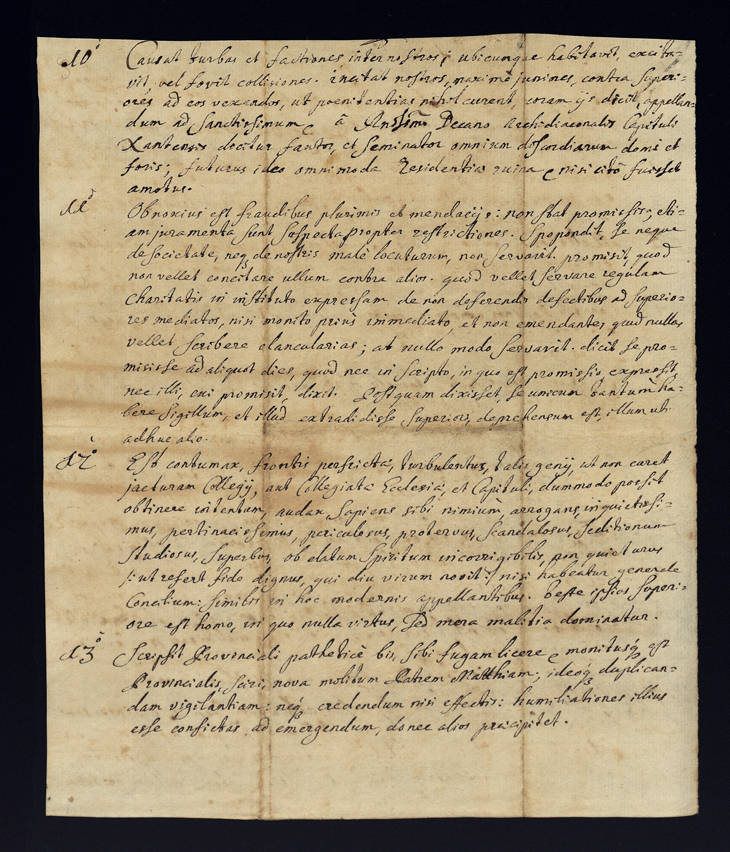 10° Causat turbas et factiones inter nostros; ubicunque habitavit, excita-
vit, vel fovit collisiones. incitat nostros, maximè juniores, contra superi-
ores ad eos vexandos, ut poenitentias nihil curent, coram ijs dicit, appellan-
dum ad Sanctissimum, à Decano Archidiaconalis Capituli
Xantensis dicitur fautor, et seminator omnium discordiarum domi et
foris; futurus ideo omnimoda Residentiae ruina, nisi citò fuisset
amotus.
11° Obnoxius est fraudibus plurimis et mendacijs: non stat promissis; eti-
am juramenta sunt suspecta propter restrictiones. Spopondit, se neque
de societate, neq de nostris malè locuturum, non servavit. promisit, quod
non vellet concitare ullum contra alios. quod vellet servare regulam
charitatis in instituto expressam de non deferendis defectibus ad superio-
res mediatos, nisi monito prius immediato, et non emendante; quod nullas
vellet scribere clancularias; at nullo modo servavit. dicit se pro-
misisse ad aliquot dies, quod nec in scripto, in quo est promissio expressit,
nec illi, cui promisit, dixit. Postquam dixisset, se unicum tantum ha-
bere sigillum, et illud extradidisse superiori, deprehensum est, illum uti
adhuc alio.
12° Est contumax, frontis perfrictae, turbulentus, talis genij, ut non curet
jacturam Collegij, aut Collegiatae Ecclesiae, et Capituli, dummodo possit
obtinere intentum, audax, sapiens sibi nimium, arrogans, inquietissi-
mus, pertinacissimus, periculosus, protervus, scandalosus, seditionum
studiosus, superbus, ob elatum spiritum incorrigibilis, non quieturus
/: ut refert fide dignus, qui diu virum novit :/ nisi habeatur generale
Concilium: similis in hoc modernis appellantibus. teste ipsius superi-
ore est homo, in quo nulla virtus, sed mera malitia dominatur.
13° Scripsit Provinciali patheticè bis, sibi fugam licere, monitusq est
Provincialis, sciri, nova molitum Patrem Matthiam; ideoq duplican-
dam vigilantiam: neq credendum nisi effectis: humiliationes illius
esse confictas ad emergendum, donec alios praecipitet.